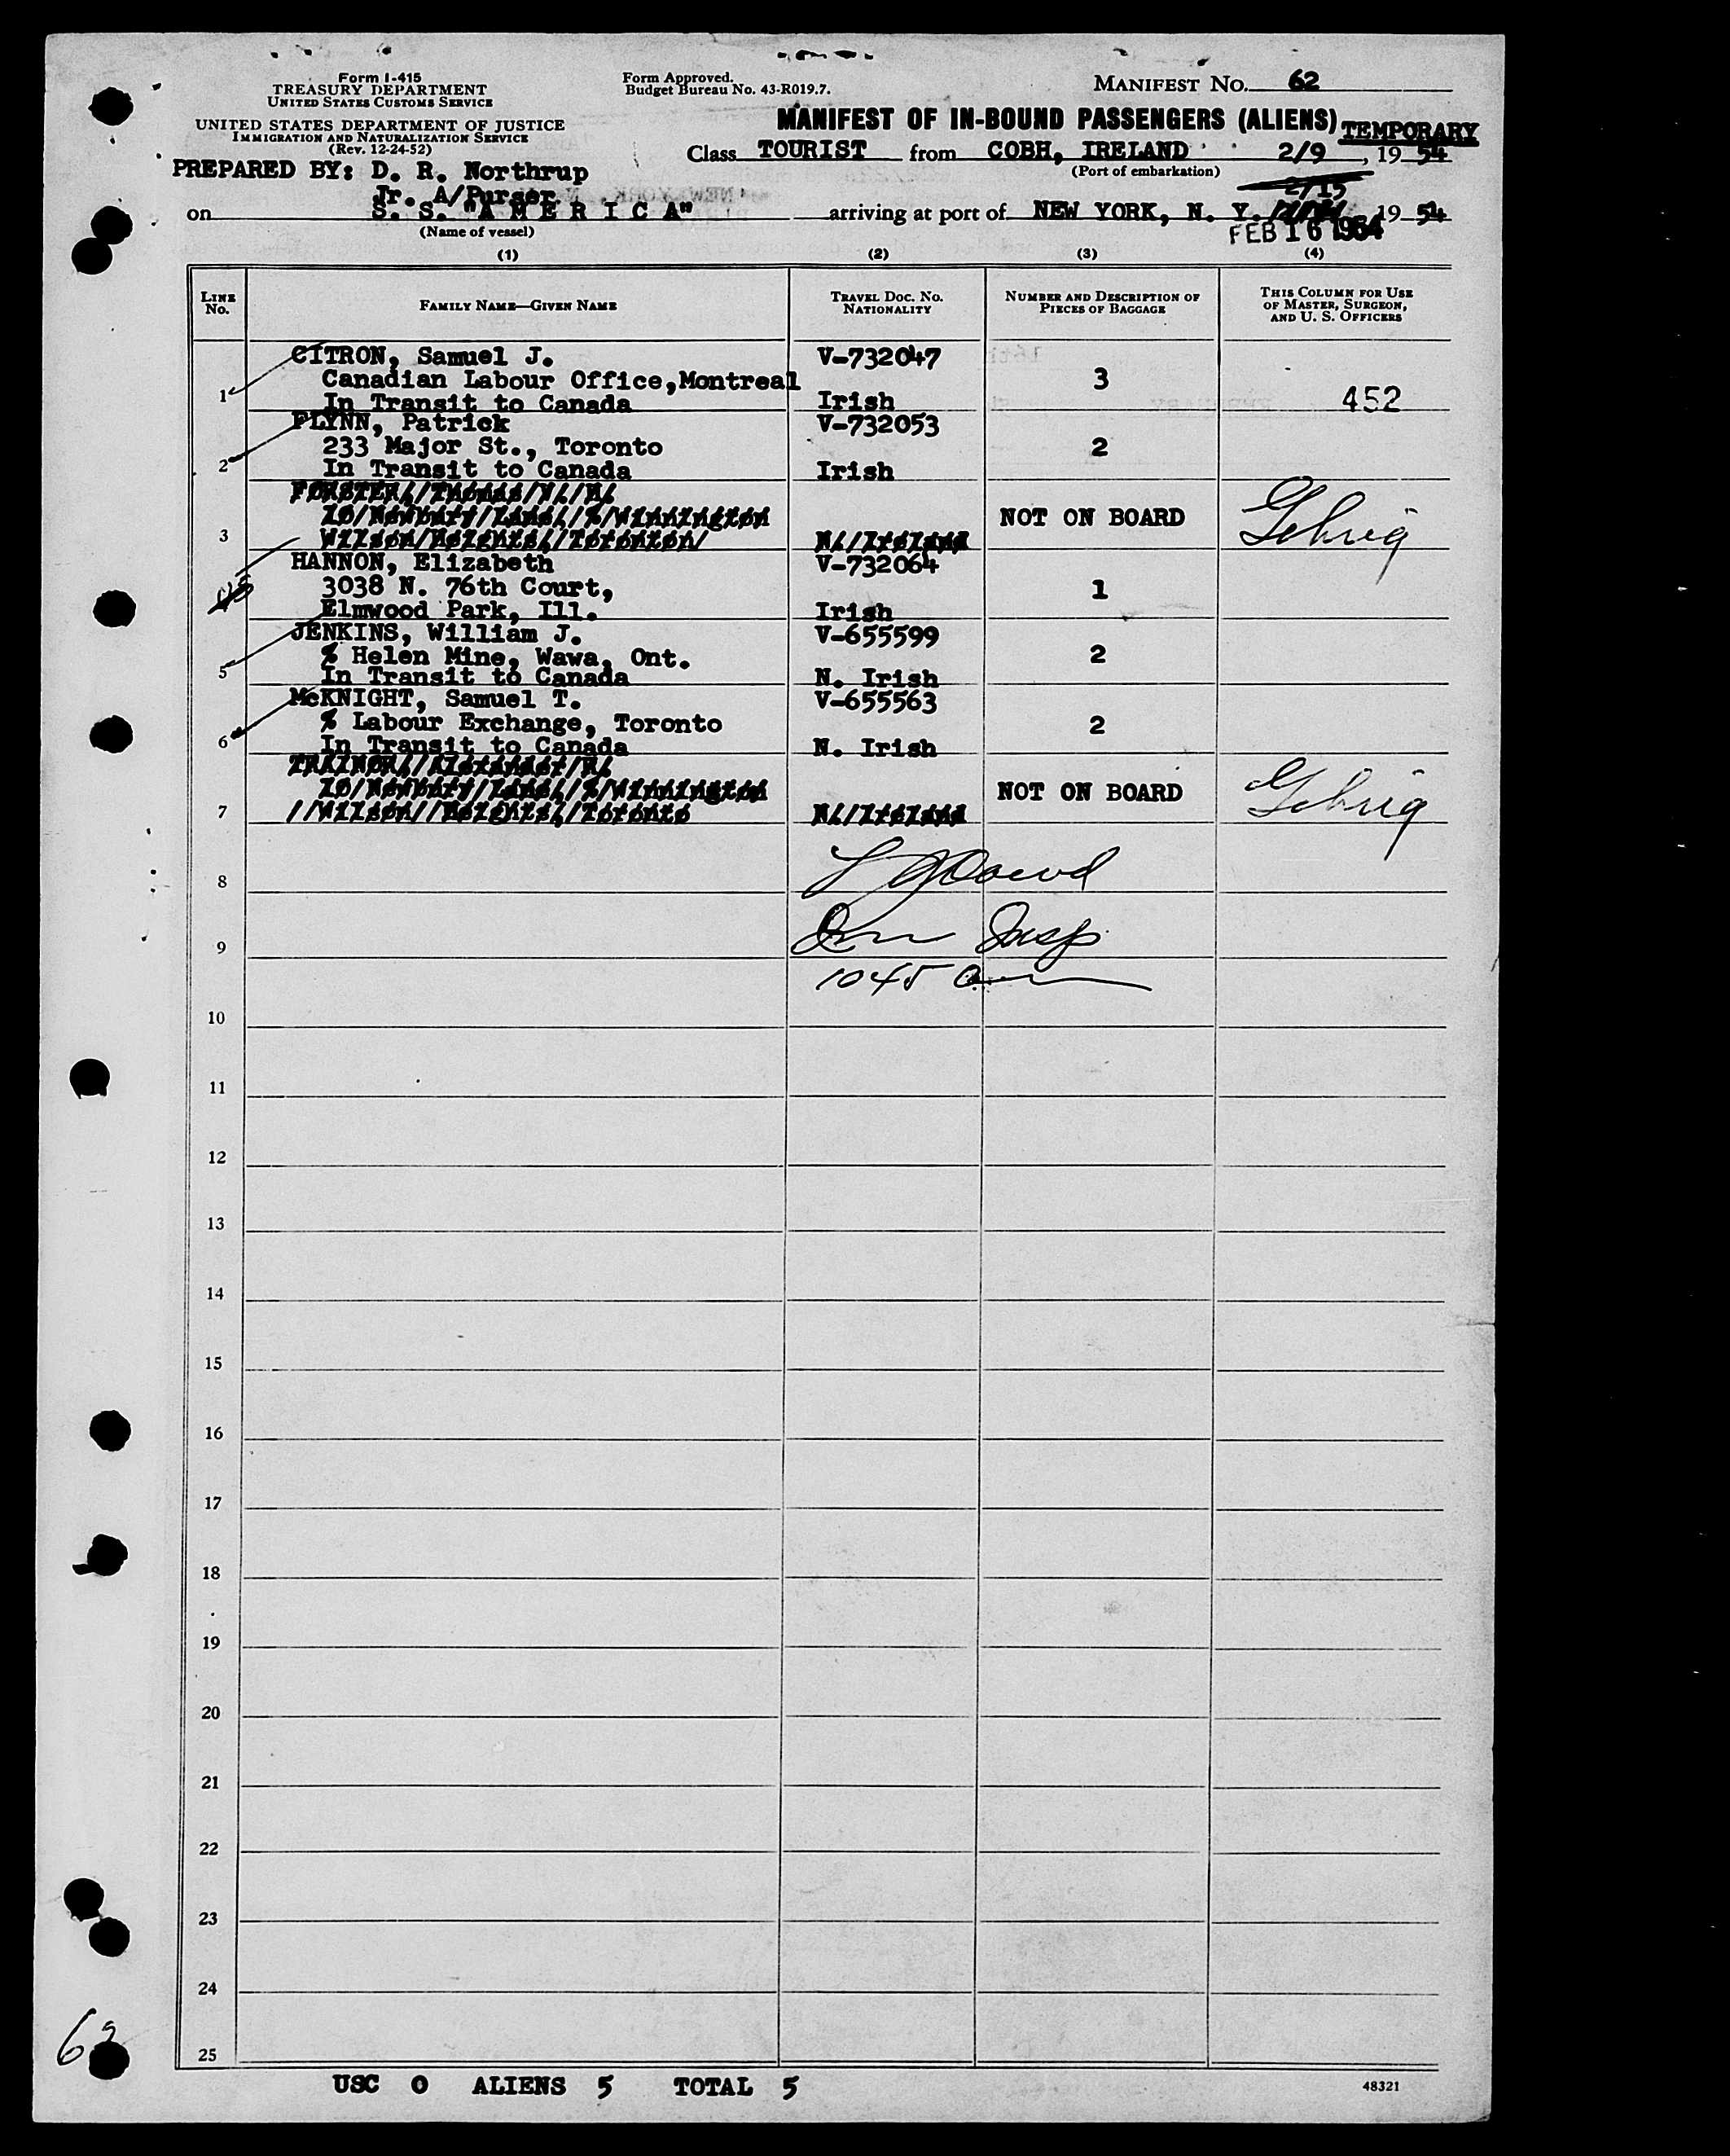 Form I-415
TREASURY DEPARTMENT
UNITED STATES CUSTOMS SERVICE
UNITED STATES DEPARTMENT OF JUSTICE
IMMIGRATION AND NATURALIZATION SERVICE
(Rev. 12-24-52)
Form Approved.
Budget Bureau No. 43-R019.7.
MANIFEST No. 62
MANIFEST OF IN-BOUND PASSENGERS (ALIENS) TEMPORARY
Class TOURIST from COBH, IRELAND 2/9, 19 54
(Port of embarkation)
PREPARED BY: D. R. Northrup
Jr. A/Purser
2/15
on S. S. "A M E R I C A" arriving at port of NEW YORK, N. Y. 19 54
(Name of vessel)
FEB 16 1954
(1) (2) (3) (4)
LINE No. FAMILY NAME—GIVEN NAME TRAVEL DOC. No. NATIONALITY NUMBER AND DESCRIPTION OF PIECES OF BAGGAGE THIS COLUMN FOR USE OF MASTER, SURGEON, AND U. S. OFFICERS
CITRON, Samuel J. V-732047
Canadian Labour Office, Montreal 3
1 In Transit to Canada Irish 452
FLYNN, Patrick V-732053
233 Major St., Toronto 2
2 In Transit to Canada Irish
FORSTER, Thomas
10 Newbury Lane, % Winnington NOT ON BOARD Gehrig
3 Wilson Heights, Toronto N. Ireland
HANNON, Elizabeth V-732064
3038 N. 76th Court, 1
Elmwood Park, Ill. Irish
JENKINS, William J. V-655599
% Helen Mine, Wawa, Ont. 2
5 In Transit to Canada N. Irish
McKNIGHT, Samuel T. V-655563
% Labour Exchange, Toronto 2
6 In Transit to Canada N. Irish
TRAINOR, Alexander
10 Newbury Lane, % Winnington NOT ON BOARD Gehrig
7 Wilson Heights, Toronto N. Ireland
8
9 Imm Insp
1045 am
10
11
12
13
14
15
16
17
18
19
20
21
22
23
24
25
62
USC 0 ALIENS 5 TOTAL 5
48321